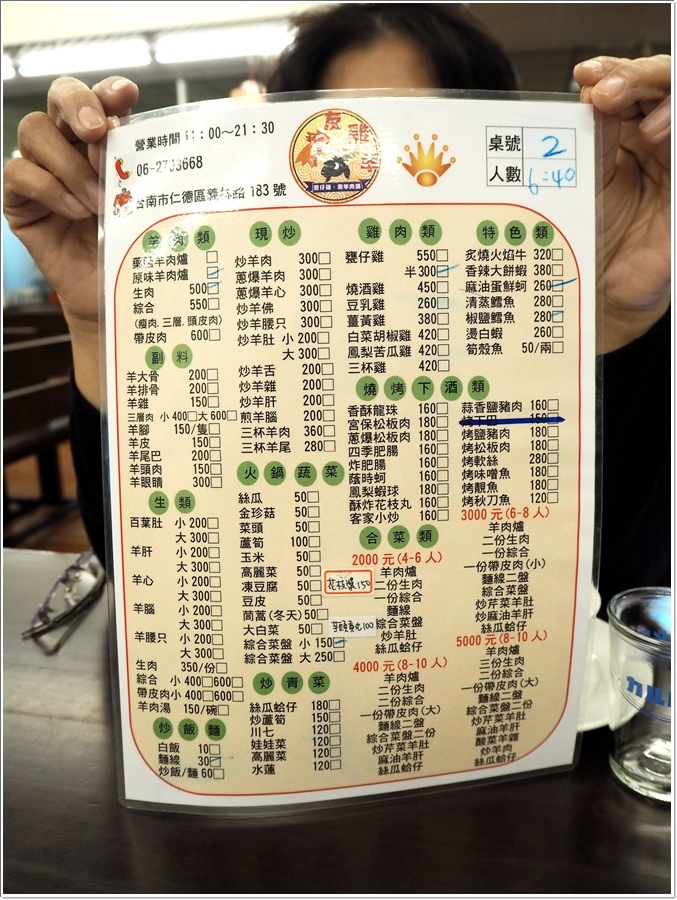 營業時間 11：00～21：30
06-2733668
台南市仁德區義林路 183 號
友 雞 羊
甕仔雞‧涮羊肉爐
桌號 2
人數 6:40
羊肉類
藥膳羊肉爐 □
原味羊肉爐 □
生肉 500□
綜合 550□
(瘦肉.三層.頭皮肉)
帶皮肉 600□
副料
羊大骨 200□
羊排骨 200□
羊雜 150□
三層肉 小 400□大 600□
羊腳 150/隻□
羊皮 150□
羊尾巴 200□
羊頭肉 150□
羊眼睛 300□
生類
百葉肚 小 200□
大 300□
羊肝 小 200□
大 300□
羊心 小 200□
大 300□
羊腦 小 200□
大 300□
羊腰只 小 200□
大 300□
生肉 350/份□
綜合 小 400□600□
帶皮肉小 400□600□
羊肉湯 150/碗□
炒飯麵
白飯 10□
麵線 30□
炒飯/麵 60□
現炒
炒羊肉 300□
蔥爆羊肉 300□
蔥爆羊心 300□
炒羊佛 300□
炒羊腰只 300□
炒羊肚 小 200□
大 300□
炒羊舌 200□
炒羊雜 200□
炒羊肝 200□
煎羊腦 200□
三杯羊肉 360□
三杯羊尾 280□
火鍋蔬菜
絲瓜 50□
金珍菇 50□
菜頭 50□
蘆筍 100□
玉米 50□
高麗菜 50□
凍豆腐 50□
豆皮 50□
茼蒿(冬天)50□
大白菜 50□
綜合菜盤 小 150□
綜合菜盤 大 250□
花枝漿150
100
炒青菜
絲瓜蛤仔 180□
炒蘆筍 150□
川七 120□
娃娃菜 120□
高麗菜 120□
水蓮 120□
雞肉類
甕仔雞 550□
半 300□
燒酒雞 450□
豆乳雞 260□
薑黃雞 380□
白菜胡椒雞 420□
鳳梨苦瓜雞 420□
三杯雞 420□
特色類
炙燒火焰牛 320□
香辣大餅蝦 380□
麻油蛋鮮蚵 260□
清蒸鱈魚 280□
椒鹽鱈魚 280□
燙白蝦 260□
筍殼魚 50/兩□
燒烤下酒類
香酥龍珠 160□
宮保松板肉 180□
蔥爆松板肉 180□
四季肥腸 160□
炸肥腸 160□
蔭蚵 160□
鳳梨蝦球 180□
酥炸花枝丸 160□
客家小炒 160□
蒜香鹽豬肉 160□
烤下巴 150□
烤鹽豬肉 180□
烤松板肉 180□
烤軟絲 280□
烤味噌魚 180□
烤靚魚 180□
烤秋刀魚 120□
合菜類
2000 元(4-6 人)
羊肉爐
二份生肉
一份綜合
麵線
綜合菜盤
炒羊肚
絲瓜蛤仔
4000 元(8-10 人)
羊肉爐
二份生肉
二份綜合
一份帶皮肉(大)
麵線二盤
綜合菜盤二份
炒芹菜羊肚
麻油羊肝
絲瓜蛤仔
3000 元(6-8 人)
羊肉爐
二份生肉
一份綜合
一份帶皮肉(小)
麵線二盤
綜合菜盤
炒芹菜羊肚
炒麻油羊肝
絲瓜蛤仔
5000 元(8-10 人)
羊肉爐
三份生肉
二份綜合
一份帶皮肉(大)
麵線二盤
綜合菜盤二份
炒芹菜羊肚
麻油羊肝
酸菜羊雜
炒羊肉
絲瓜蛤仔
カル